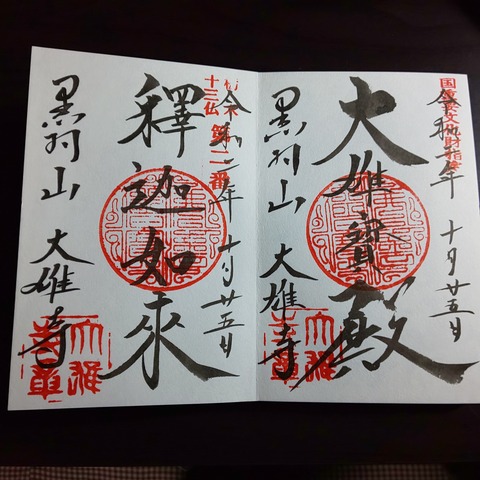 国重要文化財指定
令和二年 十月廿五日
大雄寳殿
黒羽山 大雄寺
十三仏 第二番
令和二年 十月廿五日
釋迦如來
黒羽山 大雄寺